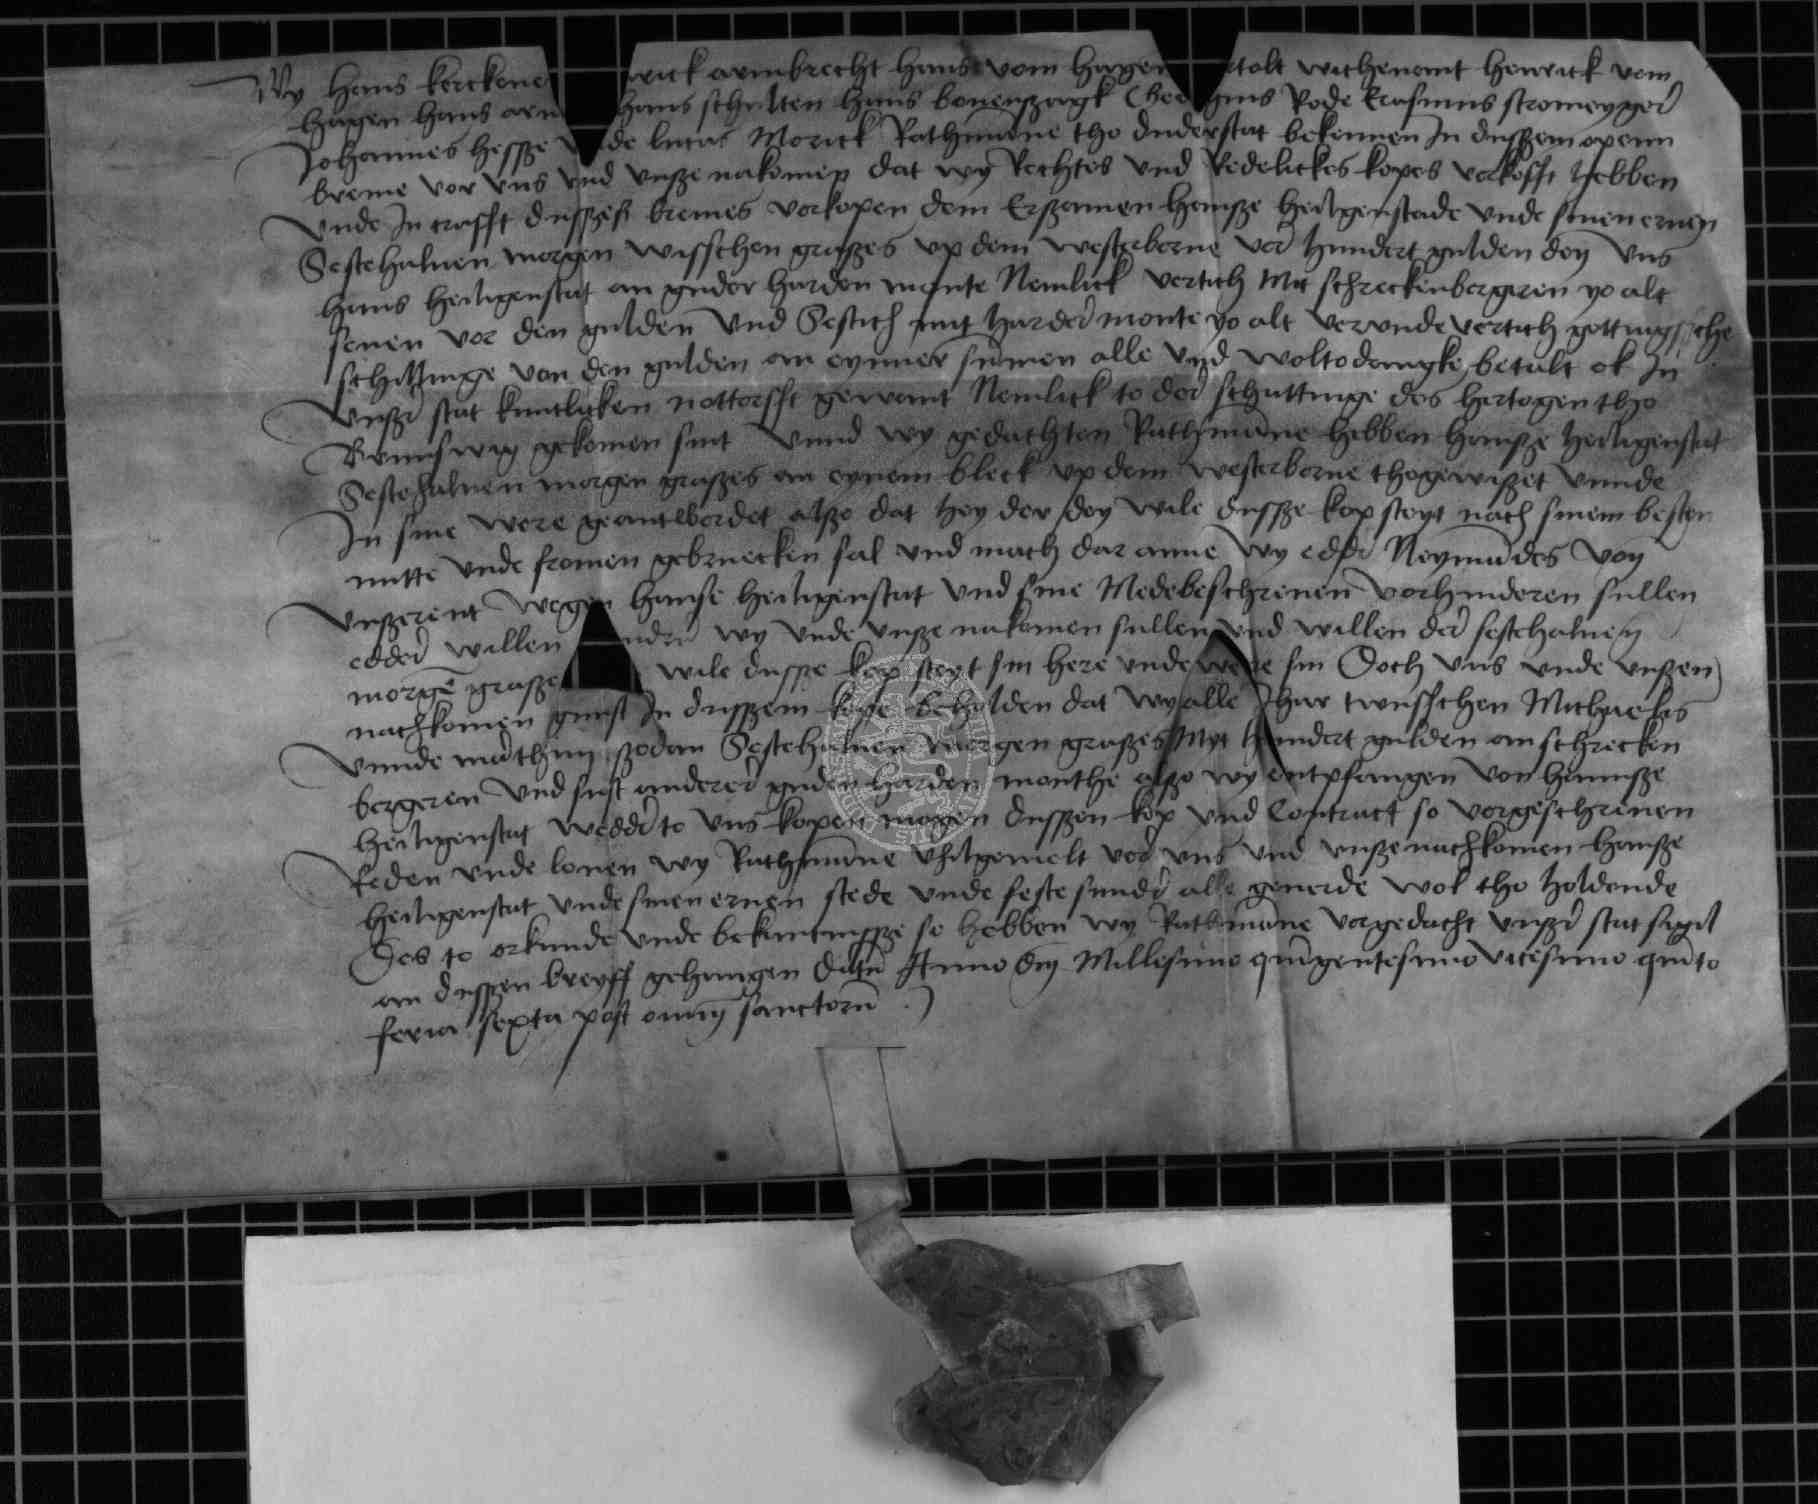 Wy Hans kerckene wick armbrecht Hans vom Hagen tolt withenant Henrick vom
Hagen Hans arm Hans schulten Hans bonenszagk gius Rode Erasmus stromeyger
Johannes Hessze de lucas Morick Rathmane tho duderstat bekennen In dusszem openn
breue vor vns vnd vnsze nakomen dat wy Rechtes vnd Redelickes kopes verkofft hebben
vnde In crafft dusszes breues vorkopen dem Erszamen Hansze heilgenstade vnde sinen eruen
Sestehaluen morgen wisschen graszes vp dem westerborne vor hundert gulden dey vns
Hans heiligenstat an guder harden munte Nemlick vertich Mit schreckenbergeren yo alt
seuen vor den gulden vnd Sestich mit harder monte yo alt vervnde vertich gottingssche
schillinge vor den gulden an eynner summen alle vnd wol to dangke betalt ok In
vnszer stat kuntlicken nottorfft gewant Nemlick to der schattinge des hertogen tho
Brunswig gekomen sint vnnd wy gedachten Rathmane hebben Hansze heiligenstat
Sestehaluen morgen graszes an eynem bleck vp dem westerborne thogewiszet vnnde
In sine were geantwordet alszo dat hey der dey wile dussze kop steyt nach sinem besten
nutte vnde fromen gebruecken sal vnd mach dar anne wy edder Neymandes von
vnszerent wegen Hanse heiligenstat vnd sine Medebeschreuen vorhinderen sullen
edder willen wy vnde vnsze nakomen sullen vnd willen der sestehaluen
morgen grasze wile dussze kop steyt sin here vnde were sin Doch vns vnde vnszen
nachkomen gunst In dusszem kope beholden dat wy alle Jhar twusschen Michaelis
vnnde marthini szodan Sestehaluen morgen graszes Myt hundert gulden an schrecken
bergeren vnd sust anderer guden harden monthe alszo wy entpfangen von Hannsze
heiligenstat wedder to vns kopen mogen dusszen kop vnd Contract so vorgeschreuen
Reden vnde louen wy Rathmane vor vns vnd vnsze nachkomen Hansze
heiligenstat vnde sinen eruen stede vnde feste sunder alle geuerde wol tho holdende
Des to orkunde vnde bekantnissze so hebben wy Rathmane vorgedacht vnszer stat sigil
an dusszen breyff gehangen Datum Anno dni Millesimo quingentesimo vicesimo quinto
feria sexta post omniu sanctoru